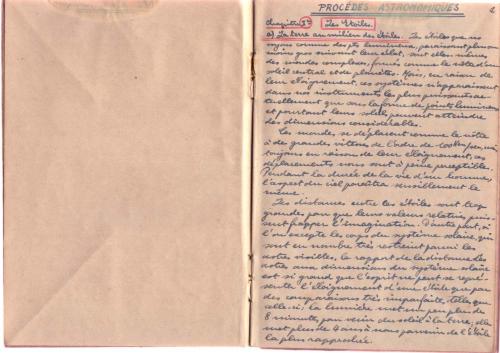 PROCÉDÉS ASTRONOMIQUES
Chapitre I Les Etoiles
a) La terre au milien des étoiles. Les étoiles que nous
voyons comme des pts lumineux, paraissant plus ou
moins gros suivant leur éclat, sont elles-mêmes
des mondes complexes, formés comme le nôtre d'un
soleil central et de planètes. Mais, en raison de
leur éloignement, ces systèmes n'apparaissent
dans nos instruments les plus puissants ac-
tuellement que sous la forme de points lumineux
et pourtant leurs soleils peuvent atteindre
des dimensions considérables.
Ces mondes se déplacent comme le nôtre
à des grandes vitesses de l'ordre de 100km/sec, mais
toujours en raison de leur éloignement, ces
déplacements nous sont à peine perceptibles.
Pendant la durée de la vie d'un homme,
l'aspect du ciel paraîtra sensiblement le
même.
Les distances entre les étoiles sont trop
grandes pour que leurs valeurs relatives puis-
sent frapper l'imagination. D'autre part, si
l'on excepte le corps du système solaire, qui
sont en nombre très restreint parmi les
astres visibles, le rapport de la distance des
astres aux dimensions du système solaire
est si grand que l'esprit ne peut se repré-
senter l'éloignement d'une étoile que par
des comparaisons très imparfaites, telles que
celle-ci: la lumière met un peu plus de
8 minutes pour venir du soleil à la terre; elle
met plus de 4 ans à nous parvenir de l'étoile
la plus rapprochée.